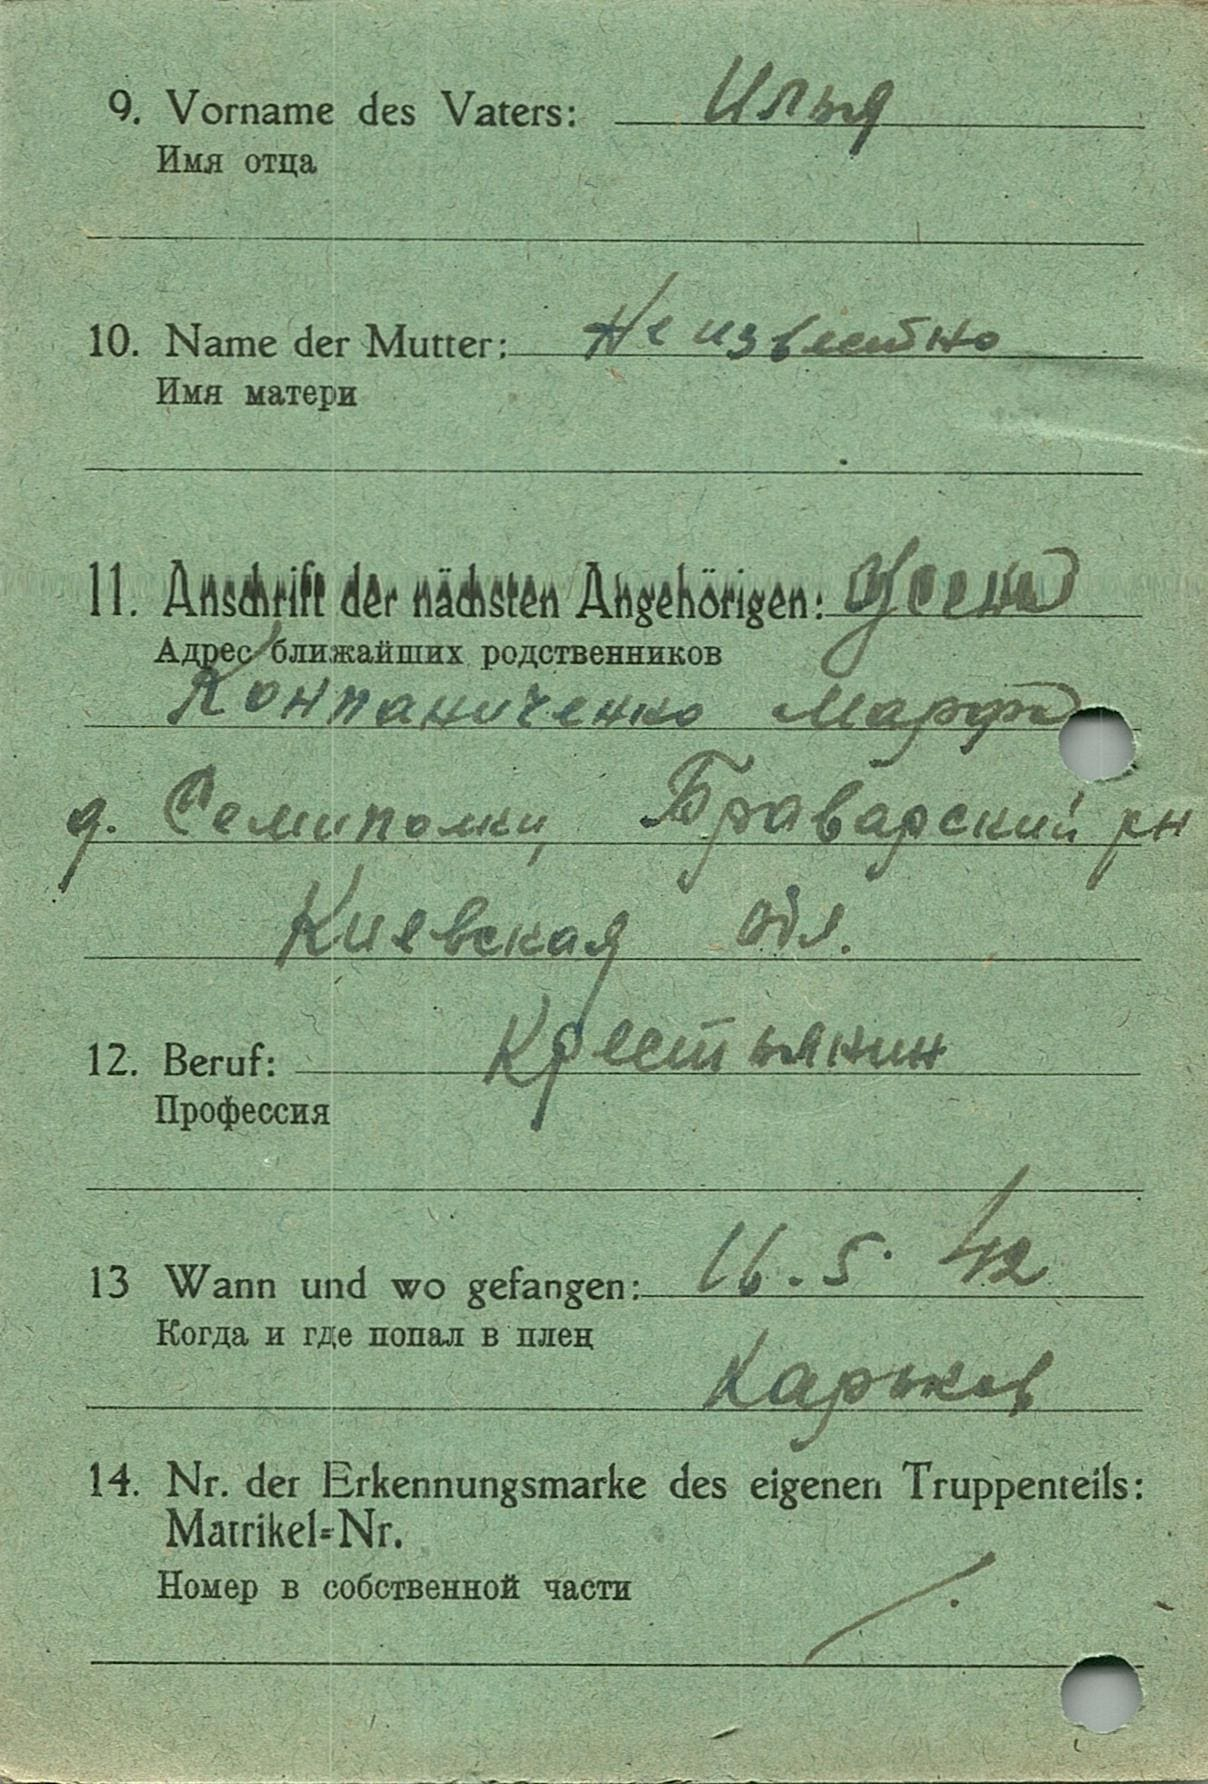 9. Vorname des Vaters: Илья
Имя отца
10. Name der Mutter: Неизвестно
Имя матери
11. Anschrift der nächsten Angehörigen:
Адрес ближайших родственников
Конпаниченко Марфа
д. Семиполки, Браварский рн
Киевская обл.
12. Beruf: Крестьянин
Профессия
13 Wann und wo gefangen: 16. 5. 42
Когда и где попал в плен
Карьков
14. Nr. der Erkennungsmarke des eigenen Truppenteils:
Matrikel=Nr.
Номер в собственной части